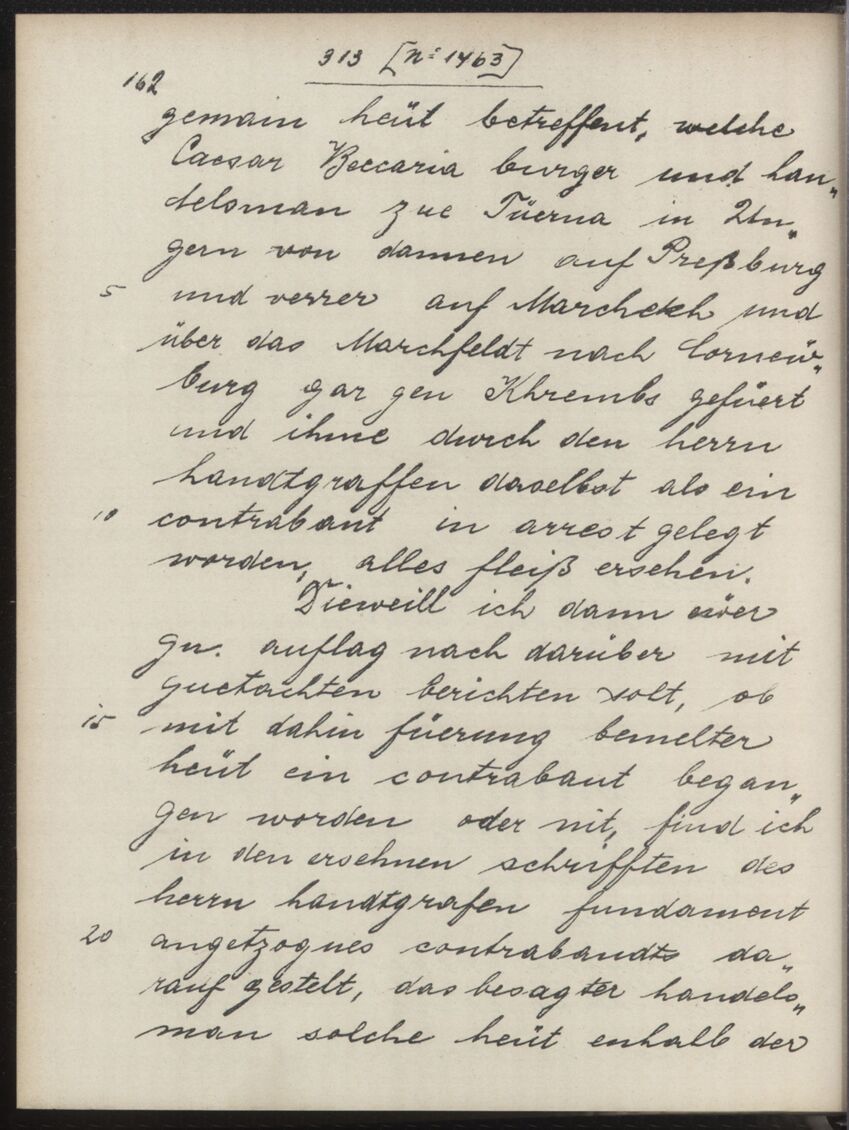 313 [n: 1463]
162
gemain heüt betreffent, welche
Caesar Beccaria burger und han„
delsman zue Tüerna in Un„
gern von dannen auf Preßburg
5 und verrer auf Marchekh und
über das Marchfeldt nach Corneü„
burg gar gen Khrembs gefüert
und ihme durch den herrn
handtgraffen daselbst als ein
10 contrabant in arrest gelegt
worden, alles fleiß ersehen.
Dieweill ich dann euer
gn. auflag nach darüber mit
guetachten berichten solt, ob
15 mit dahin füerung bemelter
heüt ein contrabant began„
gen worden oder nit, find ich
in den ersehnen schrifften des
herrn handtgrafen fundament
20 angetzognes contrabandts da„
rauf gestelt, das besagter handels„
man solche heüt enhalb der